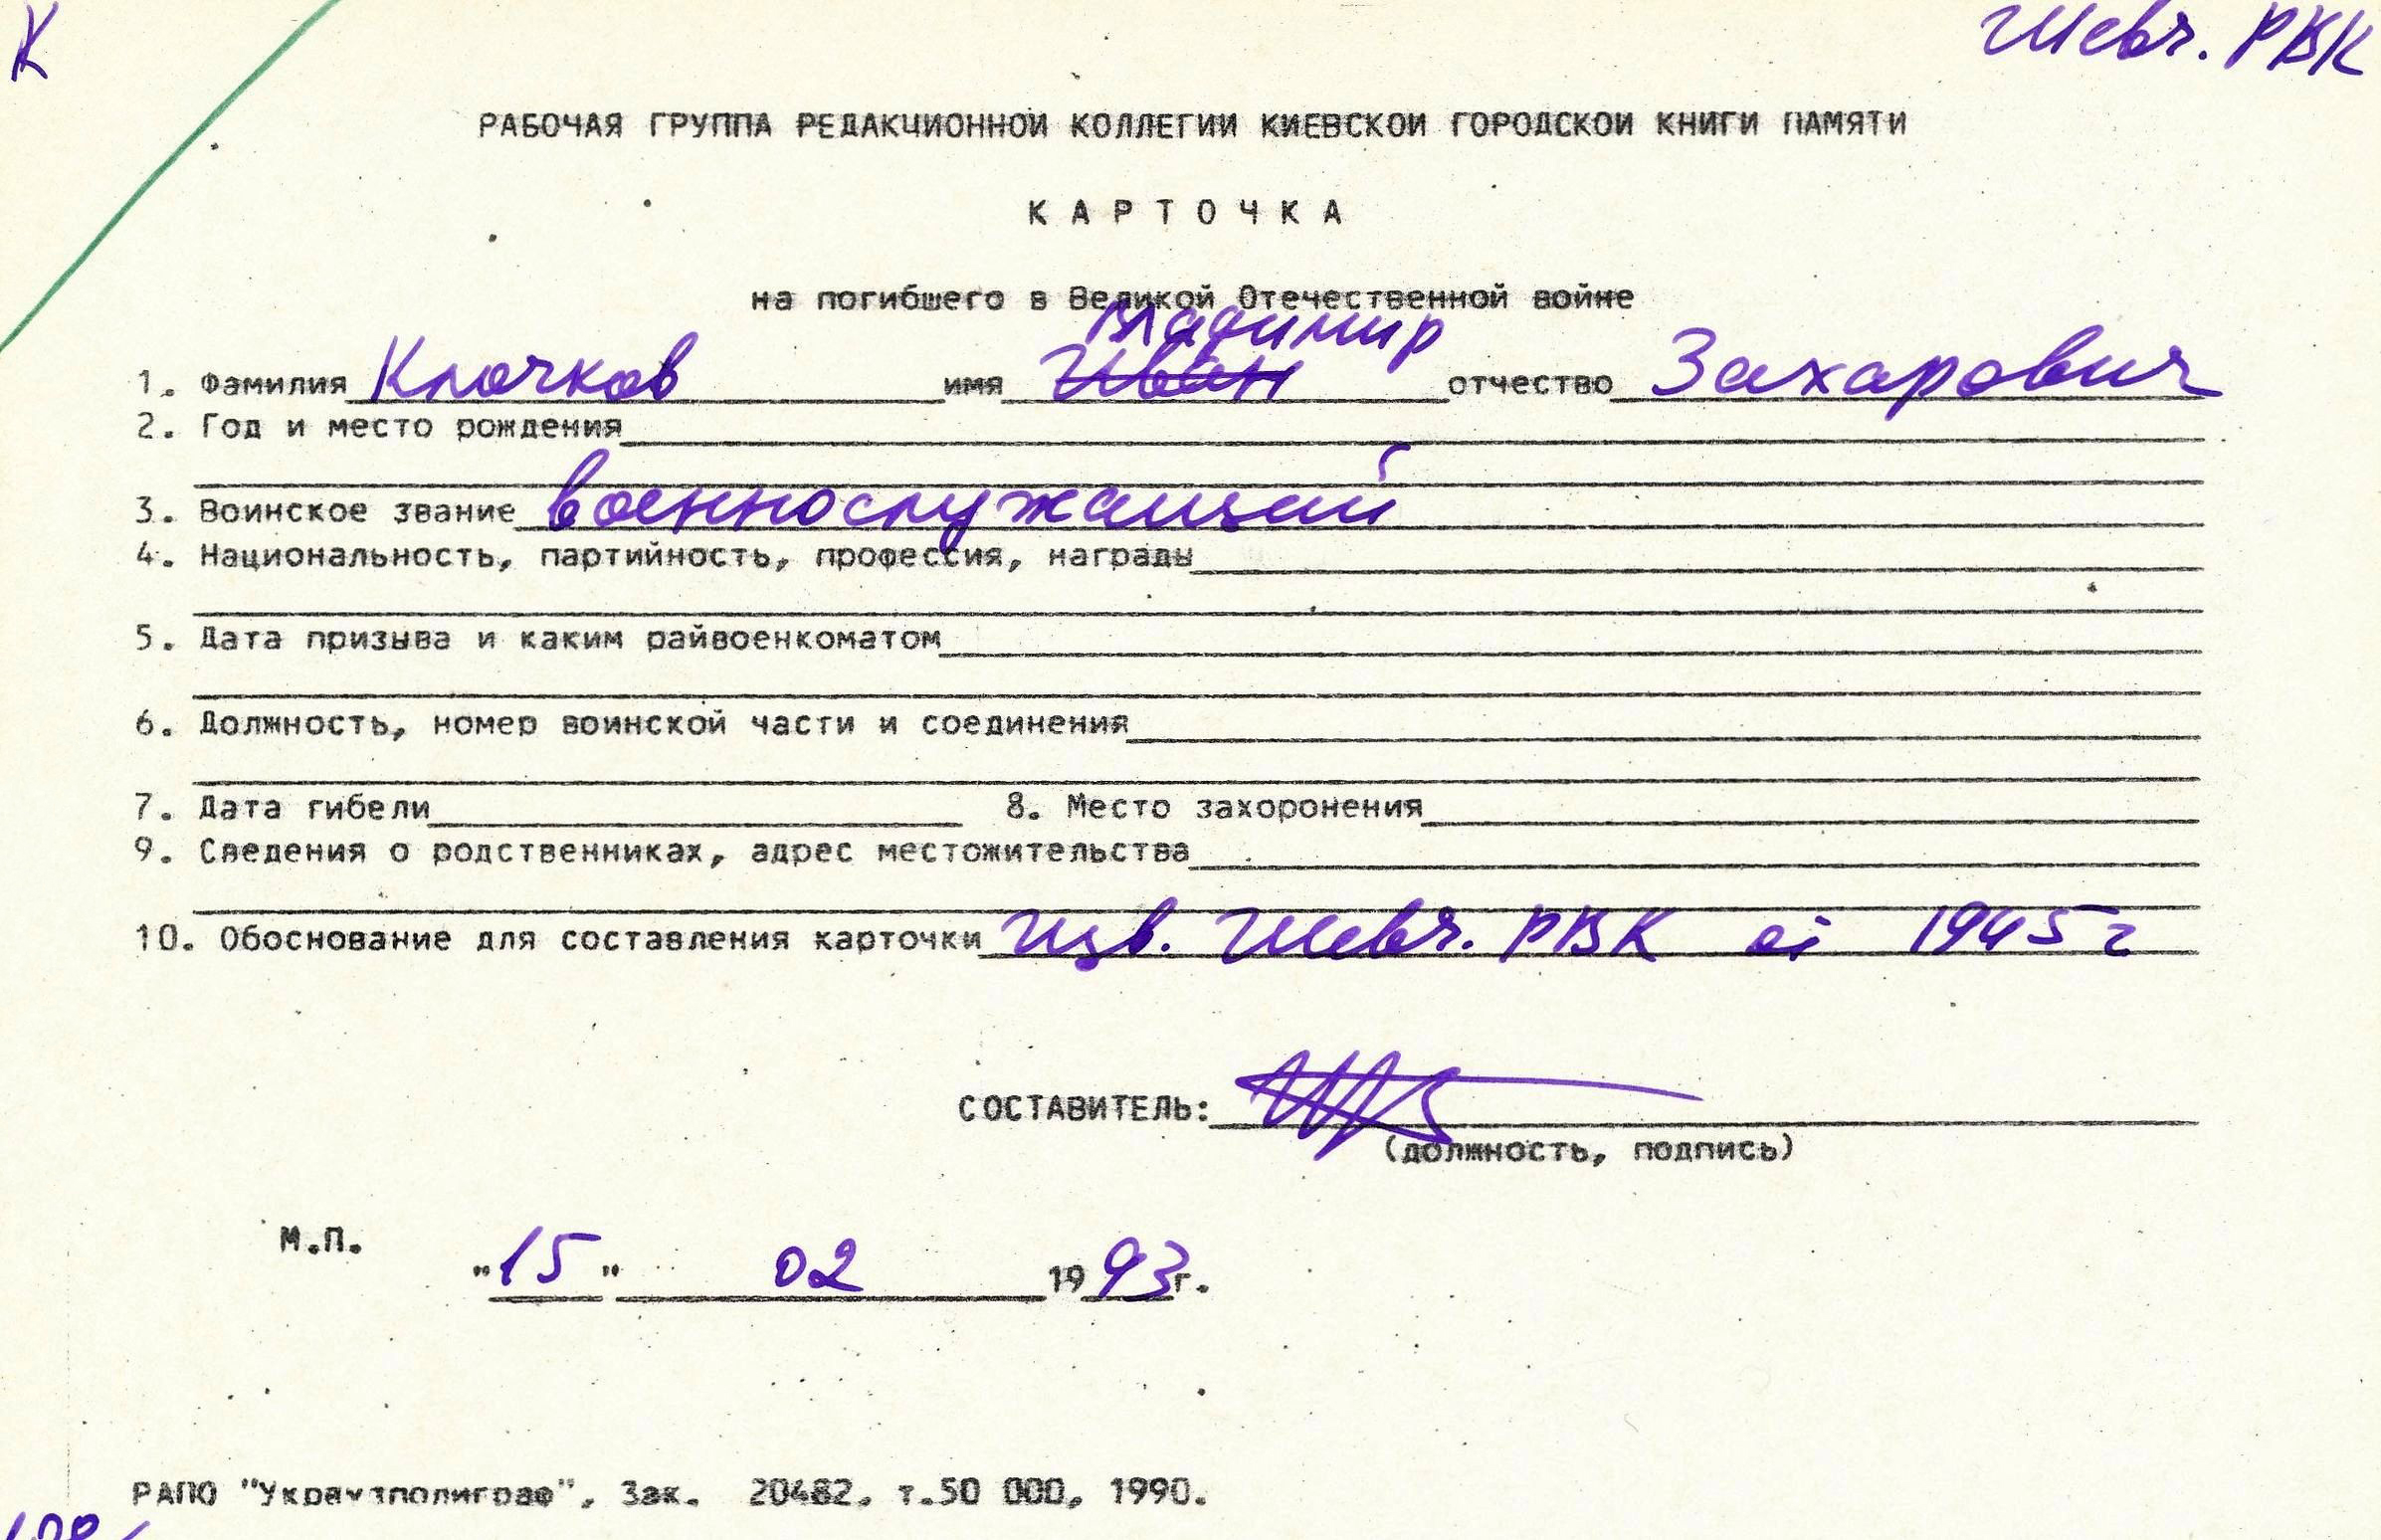 К
Шевч. РВК
РАБОЧАЯ ГРУППА РЕДАКЦИОННОЙ КОЛЛЕГИИ КИЕВСКОЙ ГОРОДСКОЙ КНИГИ ПАМЯТИ
КАРТОЧКА
на погибшего в Великой Отечественной войне
Владимир
1. Фамилия Клочков имя Иван отчество Захарович
2. Год и место рождения
3. Воинское звание военнослужащий
4. Национальность, партийность, профессия, награды
5. Дата призыва и каким райвоенкоматом
6. Должность, номер воинской части и соединения
7. Дата гибели 8. Место захоронения
9. Сведения о родственниках, адрес местожительства
10. Обоснование для составления карточки Изв. Шевч. РВК от 1945 г
СОСТАВИТЕЛЬ:
(должность, подпись)
М.П.
"15" 02 1993г.
РАПО "Укрвузполиграф", Зак. 20482, т.50 000, 1990.